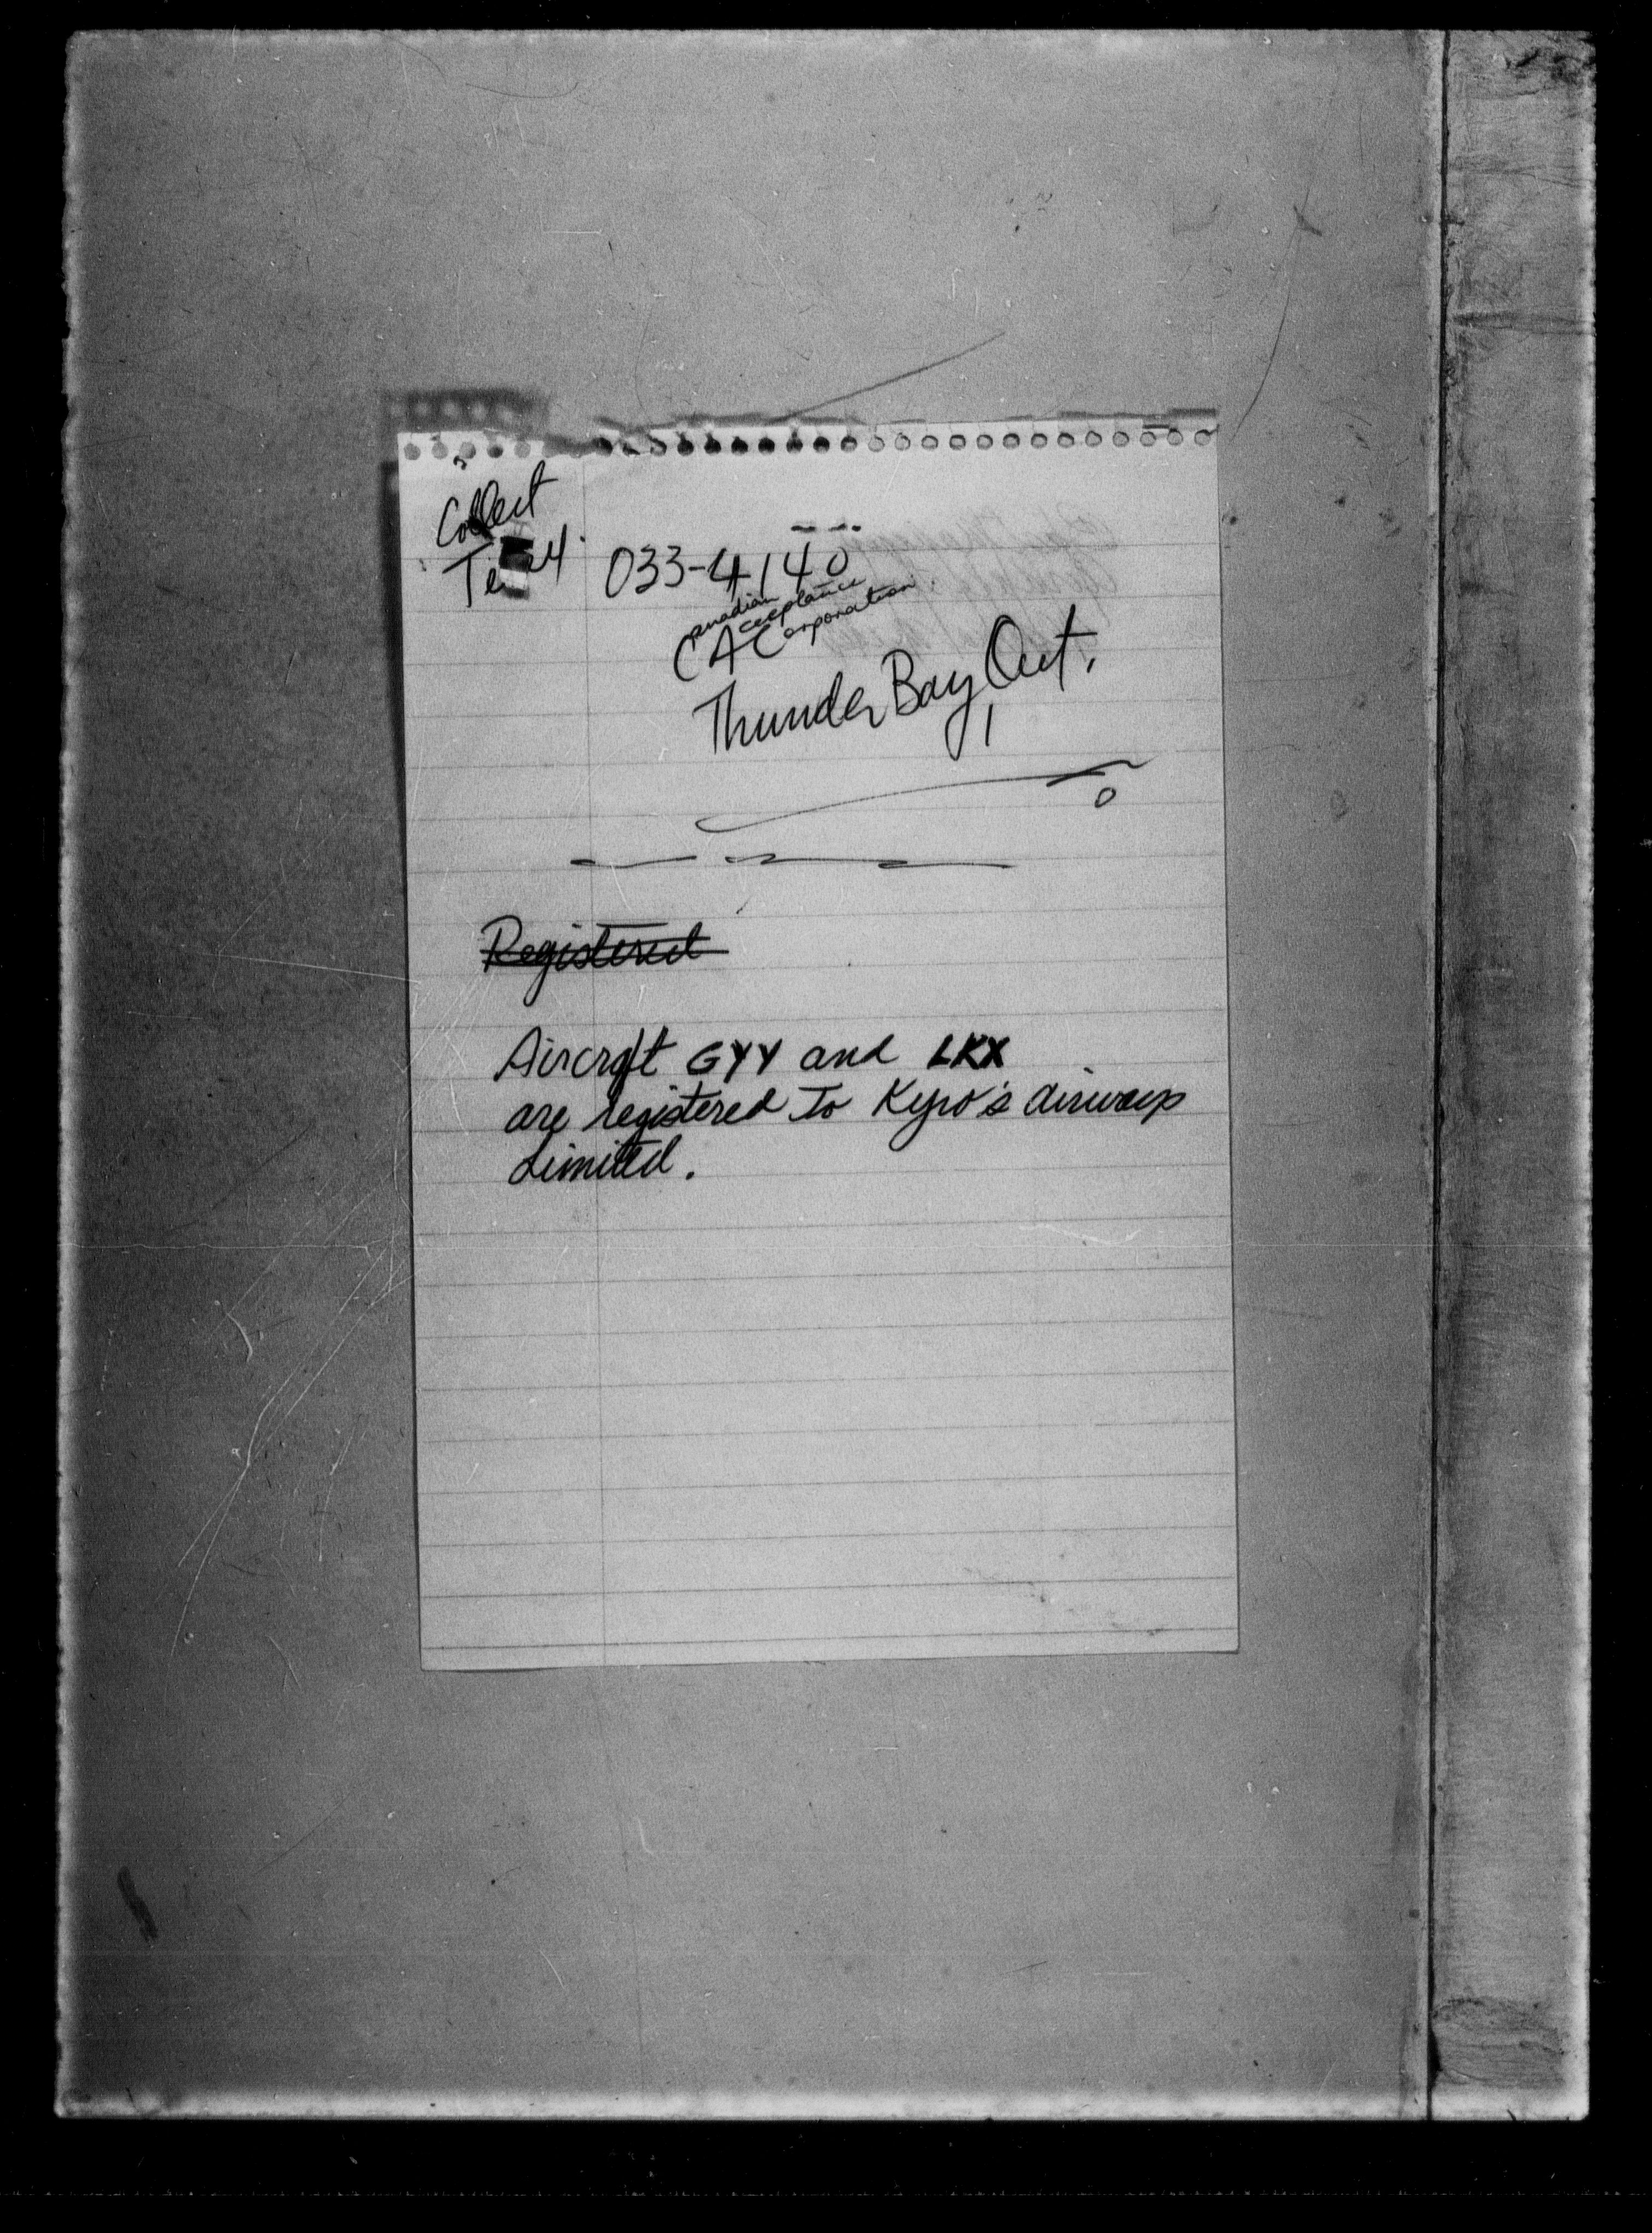 Collect
033-4140
Canadian Acceptance Corporation
Thunder Bay, Ont.
Registered
Aircraft GYY and LKX
are registered to Kyro's Airways
Limited.